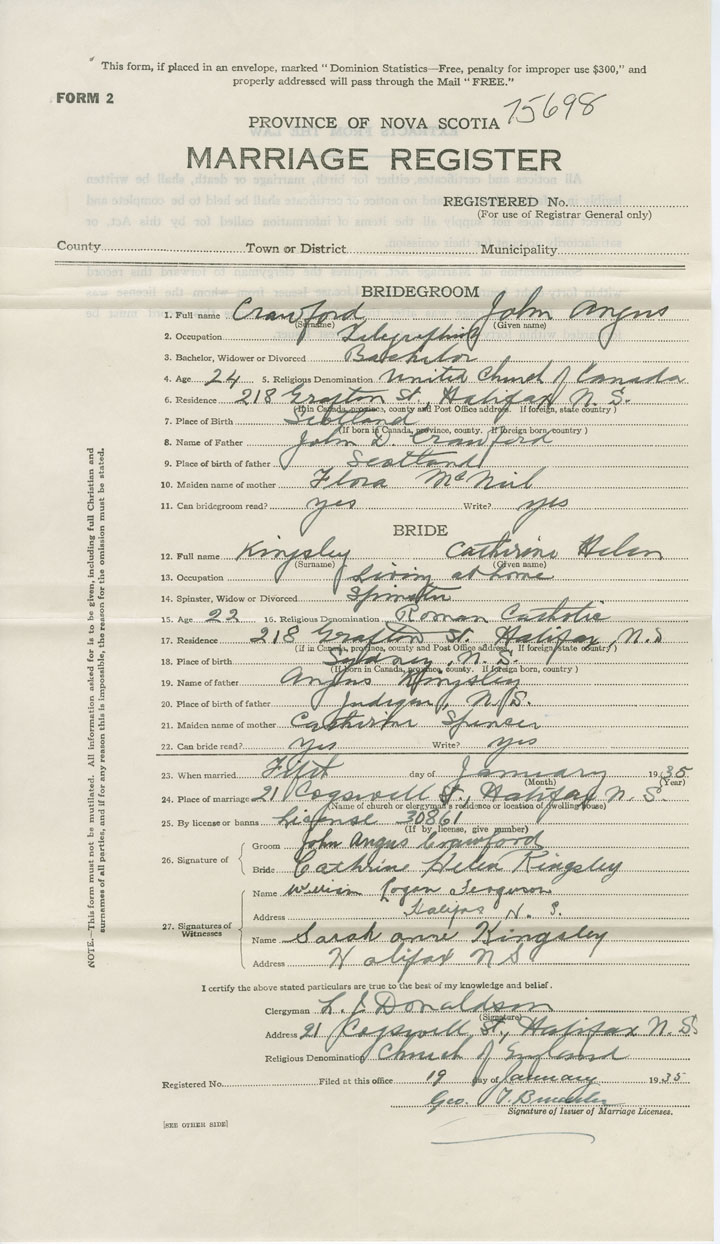 This form, if placed in an envelope, marked "Dominion Statistics—Free, penalty for improper use $300," and
properly addressed will pass through the Mail "FREE."
FORM 2
75698
PROVINCE OF NOVA SCOTIA
MARRIAGE REGISTER
REGISTERED No.
(For use of Registrar General only)
County Town or District Municipality
BRIDEGROOM
1. Full name Crawford John Angus
(Surname) (Given name)
2. Occupation Telegraphing
3. Bachelor, Widower or Divorced Bachelor
4. Age 24 5. Religious Denomination United Church of Canada
6. Residence 218 Grafton St., Halifax, N. S.
(If in Canada, province, county and Post Office address. If foreign, state country)
7. Place of Birth Scotland
(If born in Canada, province, county. If foreign born, country)
8. Name of Father John D. Crawford
9. Place of birth of father Scotland
10. Maiden name of mother Flora McNeil
11. Can bridegroom read? yes Write? yes
BRIDE
12. Full name Kingsley Catherine Helen
(Surname) (Given name)
13. Occupation Living at home
14. Spinster, Widow or Divorced Spinster
15. Age 22 16. Religious Denomination Roman Catholic
17. Residence 218 Grafton St. Halifax, N. S
(If in Canada, province, county and Post Office address. If foreign, state country)
18. Place of birth Sydney, N. S.
(If born in Canada, province, county. If foreign born, country)
19. Name of father Angus Kingsley
20. Place of birth of father Judique, N. S.
21. Maiden name of mother Catherine Spenser
22. Can bride read? Yes Write? yes
23. When married Fifth day of January 1935
(Month) (Year)
24. Place of marriage 21 Cogswell St., Halifax N. S.
(Name of church or clergyman's residence or location of dwelling house)
25. By license or banns License 30861
(If by license, give number)
26. Signature of
Groom John Angus Crawford
Bride Cathrine Helen Kingsley
27. Signatures of Witnesses
Name William Logan Ferguson
Address Halifax N. S.
Name Sarah Anne Kingsley
Address Halifax N S
I certify the above stated particulars are true to the best of my knowledge and belief.
Clergyman L. J. Donaldson
(Signature)
Address 21 Cogswell St., Halifax N. S
Religious Denomination Church of England
Registered No. Filed at this office 19 day of January 1935
Geo. T.
Signature of Issuer of Marriage Licenses.
[SEE OTHER SIDE]
NOTE.—This form must not be mutilated. All information asked for is to be given, including full Christian and
surnames of all parties, and if for any reason this is impossible, the reason for the omission must be stated.